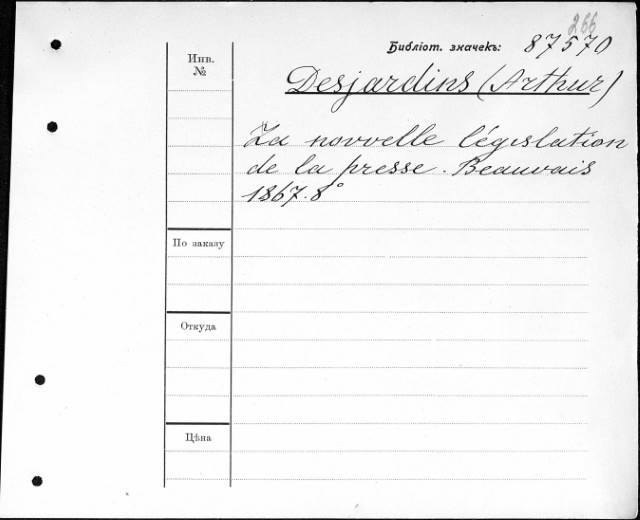 266
Библіот. значекъ: 87570
Инв.
№
Desjardins (Arthur)
La nouvelle législation
de la presse. Beauvais
1867. 8°
По заказу
Откуда
Цѣна